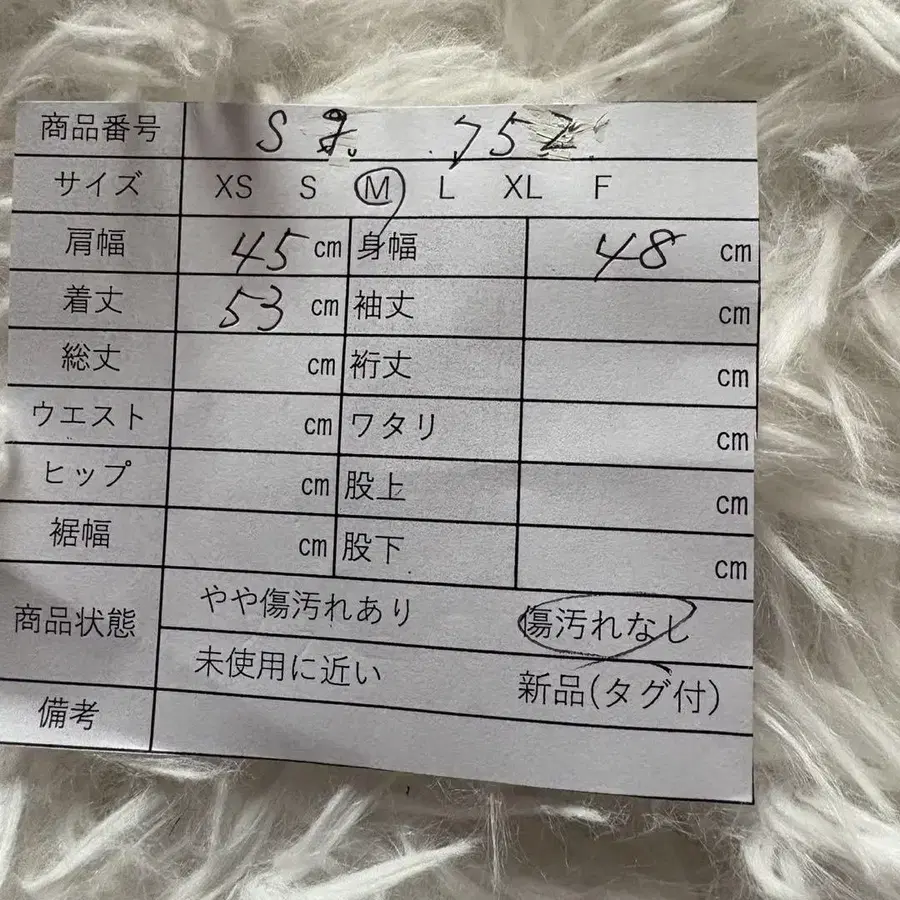 商品番号 S 752
サイズ XS S M L XL F
肩幅 45 cm 身幅 48 cm
着丈 53 cm 袖丈 cm
総丈 cm 裄丈 cm
ウエスト cm ワタリ cm
ヒップ cm 股上 cm
裾幅 cm 股下 cm
商品状態 やや傷汚れあり 傷汚れなし
未使用に近い 新品(タグ付)
備考